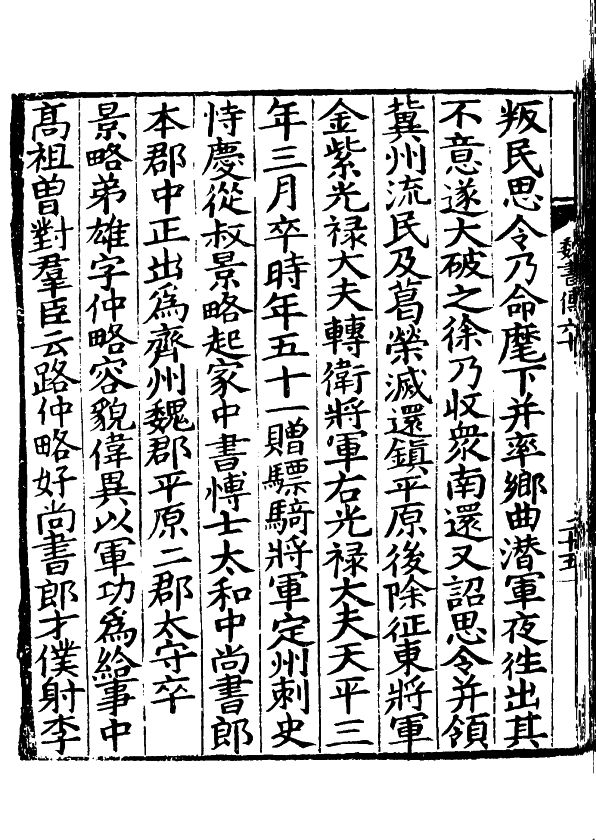 魏書傳六十
叛民思令乃命麾下并率鄉曲潛軍夜徃出其
不意遂大破之徐乃收衆南還又詔思令并領
冀州流民及葛榮滅還鎮平原後除征東將軍
金紫光禄大夫轉衛將軍右光禄大夫天平三
年三月卒時年五十一贈驃騎將軍定州刺史
恃慶從叔景略起家中書愽士太和中尚書郎
本郡中正出爲齊州魏郡平原二郡太守卒
景略弟雄字仲略容貌偉異以軍功爲給事中
髙祖曽對羣臣云路仲略好尚書郎才僕射李